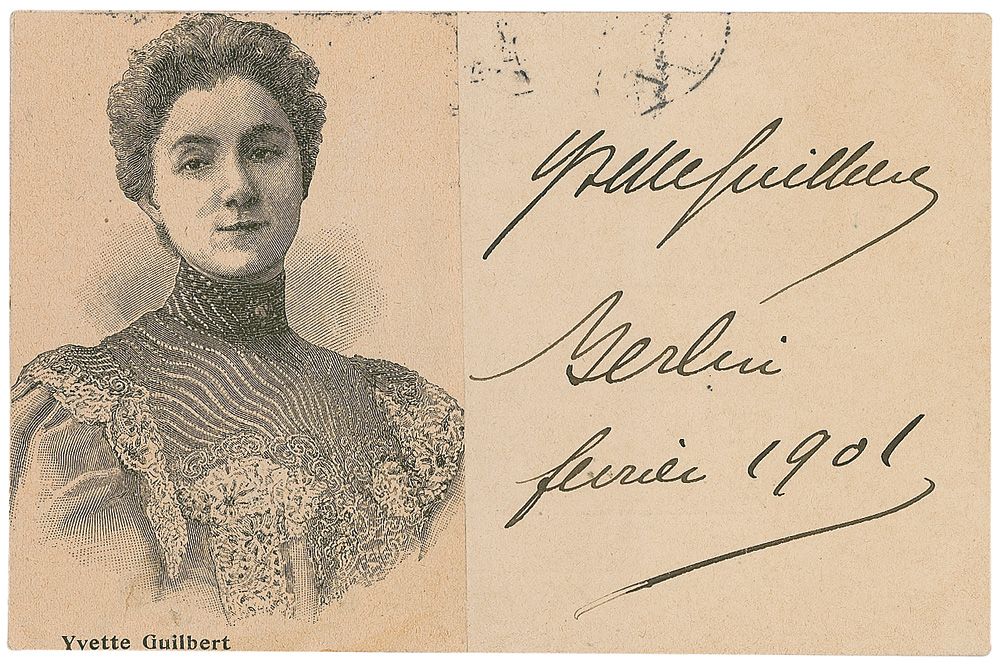 Yvette Guilbert
Yvette Guilbert
Berlin
fevrier 1901